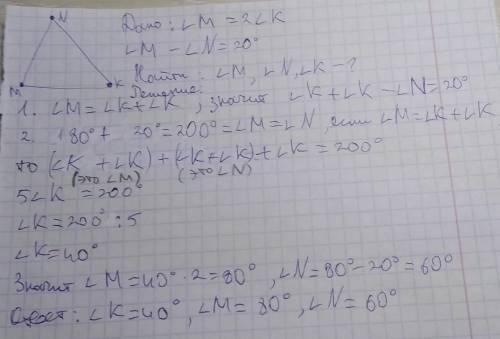 N
Дано: ∠M = 2∠K
∠M - ∠N = 20°
Найти: ∠M, ∠N, ∠K - ?
M
K
Решение:
1. ∠M = ∠K + ∠K, значит ∠K + ∠K - ∠N = 20°
2. 180° + 20° = 200° = ∠M = ∠N, если ∠M = ∠K + ∠K
то (∠K + ∠K) + (∠K + ∠K) + ∠K = 200°
(это ∠M) (это ∠N)
5∠K = 200°
∠K = 200° : 5
∠K = 40°
Значит ∠M = 40° · 2 = 80°, ∠N = 80° - 20° = 60°
Ответ: ∠K = 40°, ∠M = 80°, ∠N = 60°